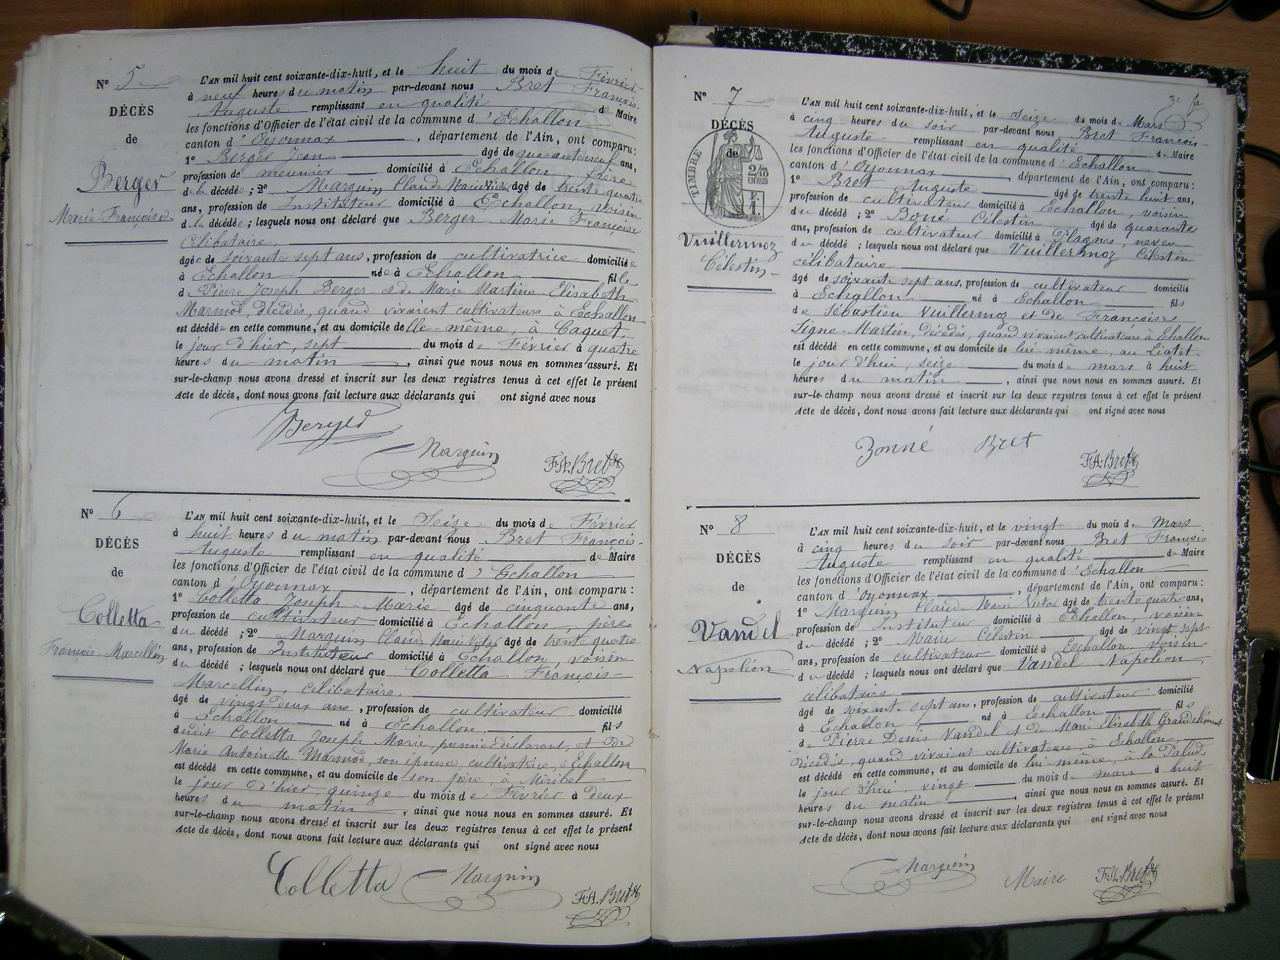 N° 5
DÉCÈS
de
Berger
Marie Françoise
L'AN mil huit cent soixante-dix-huit, et le huit du mois de Février
à neuf heures du matin par-devant nous Bret François
Auguste remplissant en qualité de Maire
les fonctions d'Officier de l'état civil de la commune d'Echallon
canton d'Oyonnax, département de l'Ain, ont comparu:
1° Berger Jean âgé de quarante neuf ans,
profession de meunier domicilié à Echallon, frère
de la décédé; 2° Marquin Claude Marie Victor âgé de trente quatre
ans, profession de Instituteur domicilié à Echallon, voisin
de la décédé; lesquels nous ont déclaré que Berger Marie Françoise
célibataire
âgée de soixante sept ans, profession de cultivatrice domiciliée
à Echallon née à Echallon fille
de Pierre Joseph Berger et de Marie Martine Elisabeth
Marmod, décédés, quand vivaient cultivateurs à Echallon
est décédée en cette commune, et au domicile d'elle-même, à
le jour d'hier, sept du mois de Février à quatre
heures du matin, ainsi que nous nous en sommes assuré. Et
sur-le-champ nous avons dressé et inscrit sur les deux registres tenus à cet effet le présent
Acte de décès, dont nous avons fait lecture aux déclarants qui ont signé avec nous
Marquin F.A. Bret
N° 6
DÉCÈS
de
Colletta
François Marcellin
L'AN mil huit cent soixante-dix-huit, et le Seize du mois de Février
à huit heures du matin par-devant nous Bret François
Auguste remplissant en qualité de Maire
les fonctions d'Officier de l'état civil de la commune d'Echallon
canton d'Oyonnax, département de l'Ain, ont comparu:
1° Colletta Joseph Marie âgé de cinquante ans,
profession de cultivateur domicilié à Echallon, père
du décédé; 2° Marquin Claude Marie Victor âgé de trente quatre
ans, profession de Instituteur domicilié à Echallon, voisin
du décédé; lesquels nous ont déclaré que Colletta François-
Marcellin, célibataire
âgé de vingt deux ans, profession de cultivateur domicilié
à Echallon né à Echallon fils
dudit Colletta Joseph Marie, premier déclarant, et de
Marie Antoinette Marmod, son épouse, cultivatrice, à Echallon
est décédé en cette commune, et au domicile de son père à Miribel
le jour d'hier, quinze du mois de Février à deux
heures du matin, ainsi que nous nous en sommes assuré. Et
sur-le-champ nous avons dressé et inscrit sur les deux registres tenus à cet effet le présent
Acte de décès, dont nous avons fait lecture aux déclarants qui ont signé avec nous
Colletta Marquin F.A. Bret
N° 7
DÉCÈS
de
TIMBRE
2/10
Vuillermoz
Célestin
L'AN mil huit cent soixante-dix-huit, et le Seize du mois de Mars
à cinq heures du soir par-devant nous Bret François-
Auguste remplissant en qualité de Maire
les fonctions d'Officier de l'état civil de la commune d'Echallon
canton d'Oyonnax, département de l'Ain, ont comparu:
1° Bret Auguste âgé de trente huit ans,
profession de cultivateur domicilié à Echallon, voisin
du décédé; 2° Boné Célestin âgé de quarante
ans, profession de cultivateur domicilié à Plagne, neveu
du décédé; lesquels nous ont déclaré que Vuillermoz Célestin
célibataire
âgé de soixante sept ans, profession de cultivateur domicilié
à Echallon né à Echallon fils
de Sébastien Vuillermoz et de Françoise
Martin, décédés, quand vivaient cultivateurs à Echallon
est décédé en cette commune, et au domicile de lui même, au
le jour d'hui, seize du mois de mars à huit
heures du matin, ainsi que nous nous en sommes assuré. Et
sur-le-champ nous avons dressé et inscrit sur les deux registres tenus à cet effet le présent
Acte de décès, dont nous avons fait lecture aux déclarants qui ont signé avec nous
Bonné Bret F.A. Bret
N° 8
DÉCÈS
de
Vandel
Napoléon
L'AN mil huit cent soixante-dix-huit, et le vingt du mois de Mars
à cinq heures du soir par-devant nous Bret François
Auguste remplissant en qualité de Maire
les fonctions d'Officier de l'état civil de la commune d'Echallon
canton d'Oyonnax, département de l'Ain, ont comparu:
1° Marquin Claude Marie Victor âgé de trente quatre ans,
profession de Instituteur domicilié à Echallon, voisin
du décédé; 2° Maire Célestin âgé de vingt sept
ans, profession de cultivateur domicilié à Echallon, voisin
du décédé; lesquels nous ont déclaré que Vandel Napoléon,
célibataire
âgé de soixante sept ans, profession de cultivateur domicilié
à Echallon né à Echallon fils
de Pierre Denis Vandel et de Marie Elisabeth
décédés, quand vivaient cultivateurs, à Echallon
est décédé en cette commune, et au domicile de lui même, à la Palud
le jour d'hui, vingt du mois de mars à huit
heures du matin, ainsi que nous nous en sommes assuré. Et
sur-le-champ nous avons dressé et inscrit sur les deux registres tenus à cet effet le présent
Acte de décès, dont nous avons fait lecture aux déclarants qui ont signé avec nous
Marquin Maire F.A. Bret